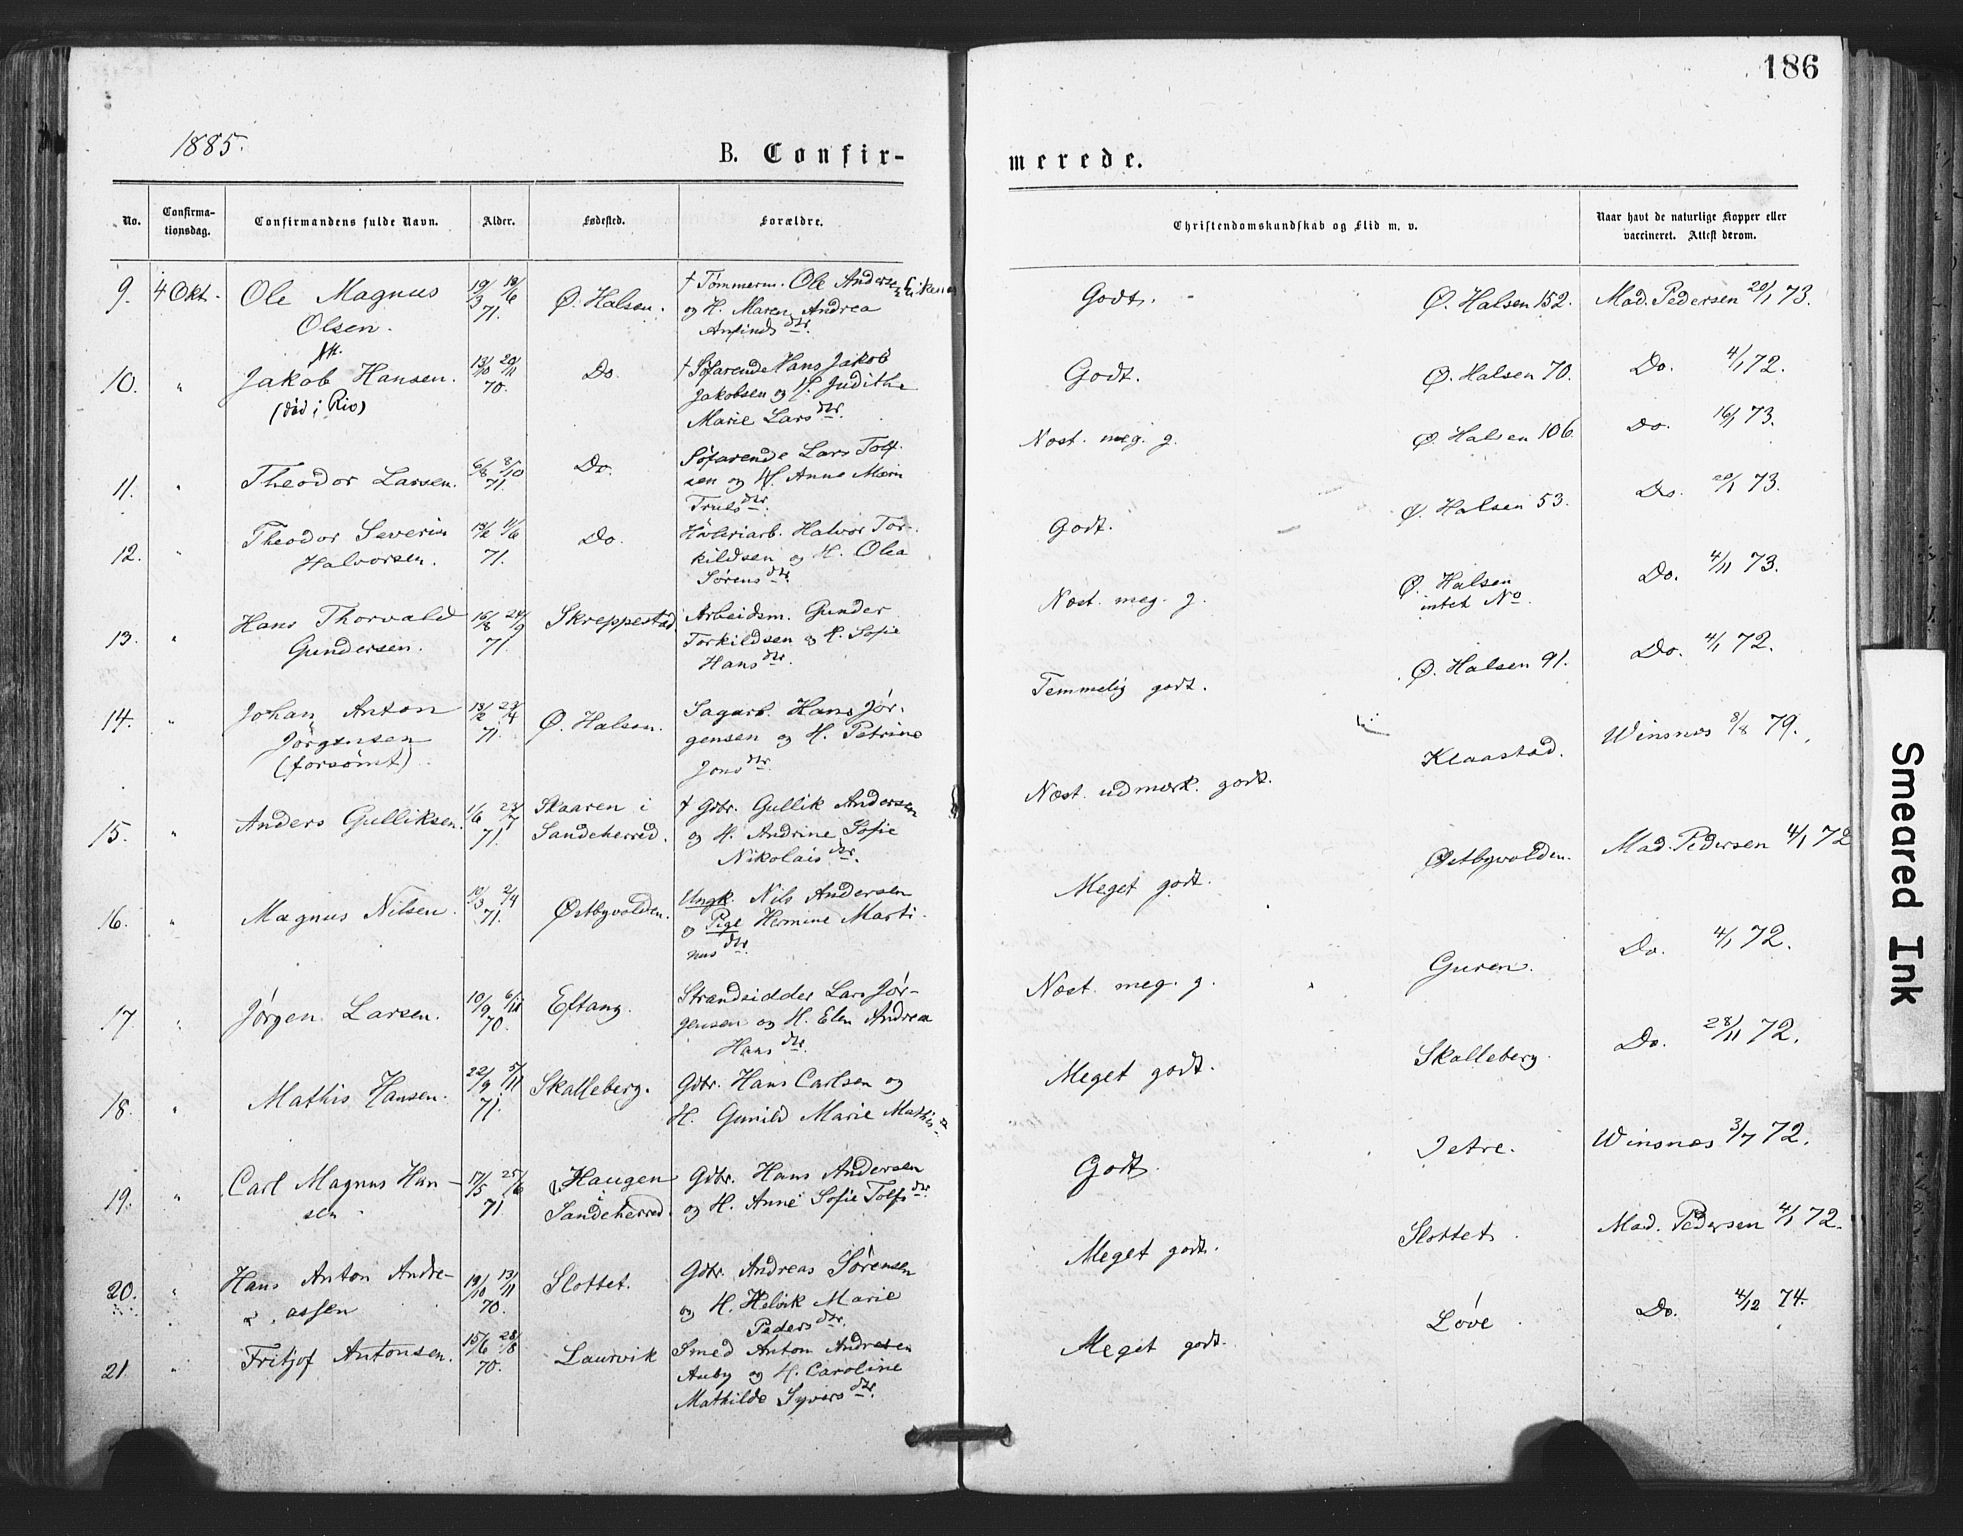 186
1885.
B. Confir-
merede.
No.
Confirma-
tionsdag.
Confirmandens fulde Navn.
Alder.
Fødested.
Forældre.
Christendomskundskab og Flid m. v.
Naar havt de naturlige Kopper eller
vaccineret. Attest derom.
9. 4 Okt. Ole Magnus
Olsen.
71.
Ø. Halsen.
† Tømmerm. Ole Andersen
og H. Maren Andrea
Anfinds dtr.
Godt.
Ø. Halsen 152.
Mad. Pedersen 20/1 73.
10. " Jakob Hansen.
(død i Rio)
13/10 20/11
70.
Do.
† Søfarende Hans Jakob
Jakobsen og H. Judithe
Marie Lars dtr.
Godt.
Ø. Halsen 70.
Do. 4/1 72.
11. " Theodor Larsen.
6/8 8/10
71.
Do.
Søfarende Lars Tolf-
sen og H. Anne Marie
Truls dtr.
Næst. meg. g.
Ø. Halsen 106.
Do. 16/1 73.
12. " Theodor Severin
Halvorsen.
71.
Do.
Høvleriarb. Halvor Tor-
kildsen og H. Olea
Sørens dtr.
Godt.
Ø. Halsen 53.
Do. 20/1 73.
13. " Hans Thorvald
Gundersen.
16/8 24/9
71.
Skreppestad
Arbeidsm. Gunder
Torkildsen og H. Sofie
Hans dtr.
Næst. meg. g.
Ø. Halsen
intet No.
Do. 4/11 73.
14. " Johan Anton
Jørgensen
(forsømt)
13/2 23/4
71.
Ø. Halsen.
Sagarb. Hans Jør-
gensen og H. Petrine
Jons dtr.
Temmelig godt.
Ø. Halsen 91.
Do. 4/1 72.
15. " Anders Gulliksen.
1/6 23/7
71.
Skaaren i
Sandeherred.
† Gdbr. Gullik Andersen
og H. Andrine Sofie
Nikolais dtr.
Næst. udmærk. godt.
Klaastad.
Winsnes 8/8 79.
16. " Magnus Nilsen.
10/3 2/4
71.
Østbyvolden.
Ungk. Nils Andersen
og Pige Hermine Marti-
nus dtr.
Meget godt.
Østbyvolden.
Mad. Pedersen 4/1 72
17. " Jørgen Larsen.
10/9 6/11
70.
Eftang.
Strandsidder Lars Jør-
gensen og H. Elen Andrea
Hans dtr.
Næst. meg. g.
Guren.
Do. 4/1 72.
18. " Mathis Hansen.
22/9 5/11
71.
Skalleberg.
Gdbr. Hans Carlsen og
H. Gunild Marie Mathis
Meget godt.
Skalleberg.
Do. 28/11 72.
19. " Carl Magnus Han-
sen
17/5 25/6
71
Haugen
i
Sandeherred.
Gdbr. Hans Andersen
og H. Anne Sofie Tolfs dtr.
Godt.
Winsnes 3/7 72.
20. " Hans Anton Andre-
assen
19/10 13/11
70.
Slottet.
Gdbr. Andreas Sørensen
og H. Helvik Marie
Peders dtr.
Meget godt.
Slottet.
Mad. Pedersen 4/1 72.
21. " Fritjof Antonsen.
15/6 28/8
70.
Laurvik
Smed Anton Andresen
Auby og H. Caroline
Mathilde Syvers dtr.
Meget godt.
Løve.
Do. 4/12 74.
Smeared Ink